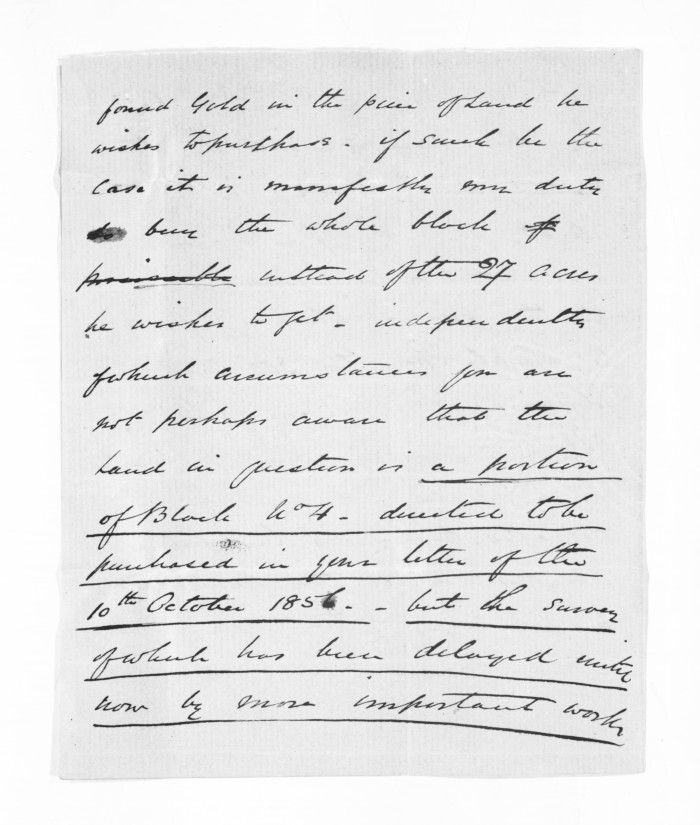 found Gold in the piece of Land he
wishes to purchase - if such be the
case it is manifestly my duty
to buy the whole block of
instead of the 27 acres
he wishes to get - independently
of which circumstances you are
not perhaps aware that the
Land in question is a portion
of Block No 4 - directed to be
purchased in your letter of the
10th October 1856 - - but the survey
of which has been delayed until
now by more important works